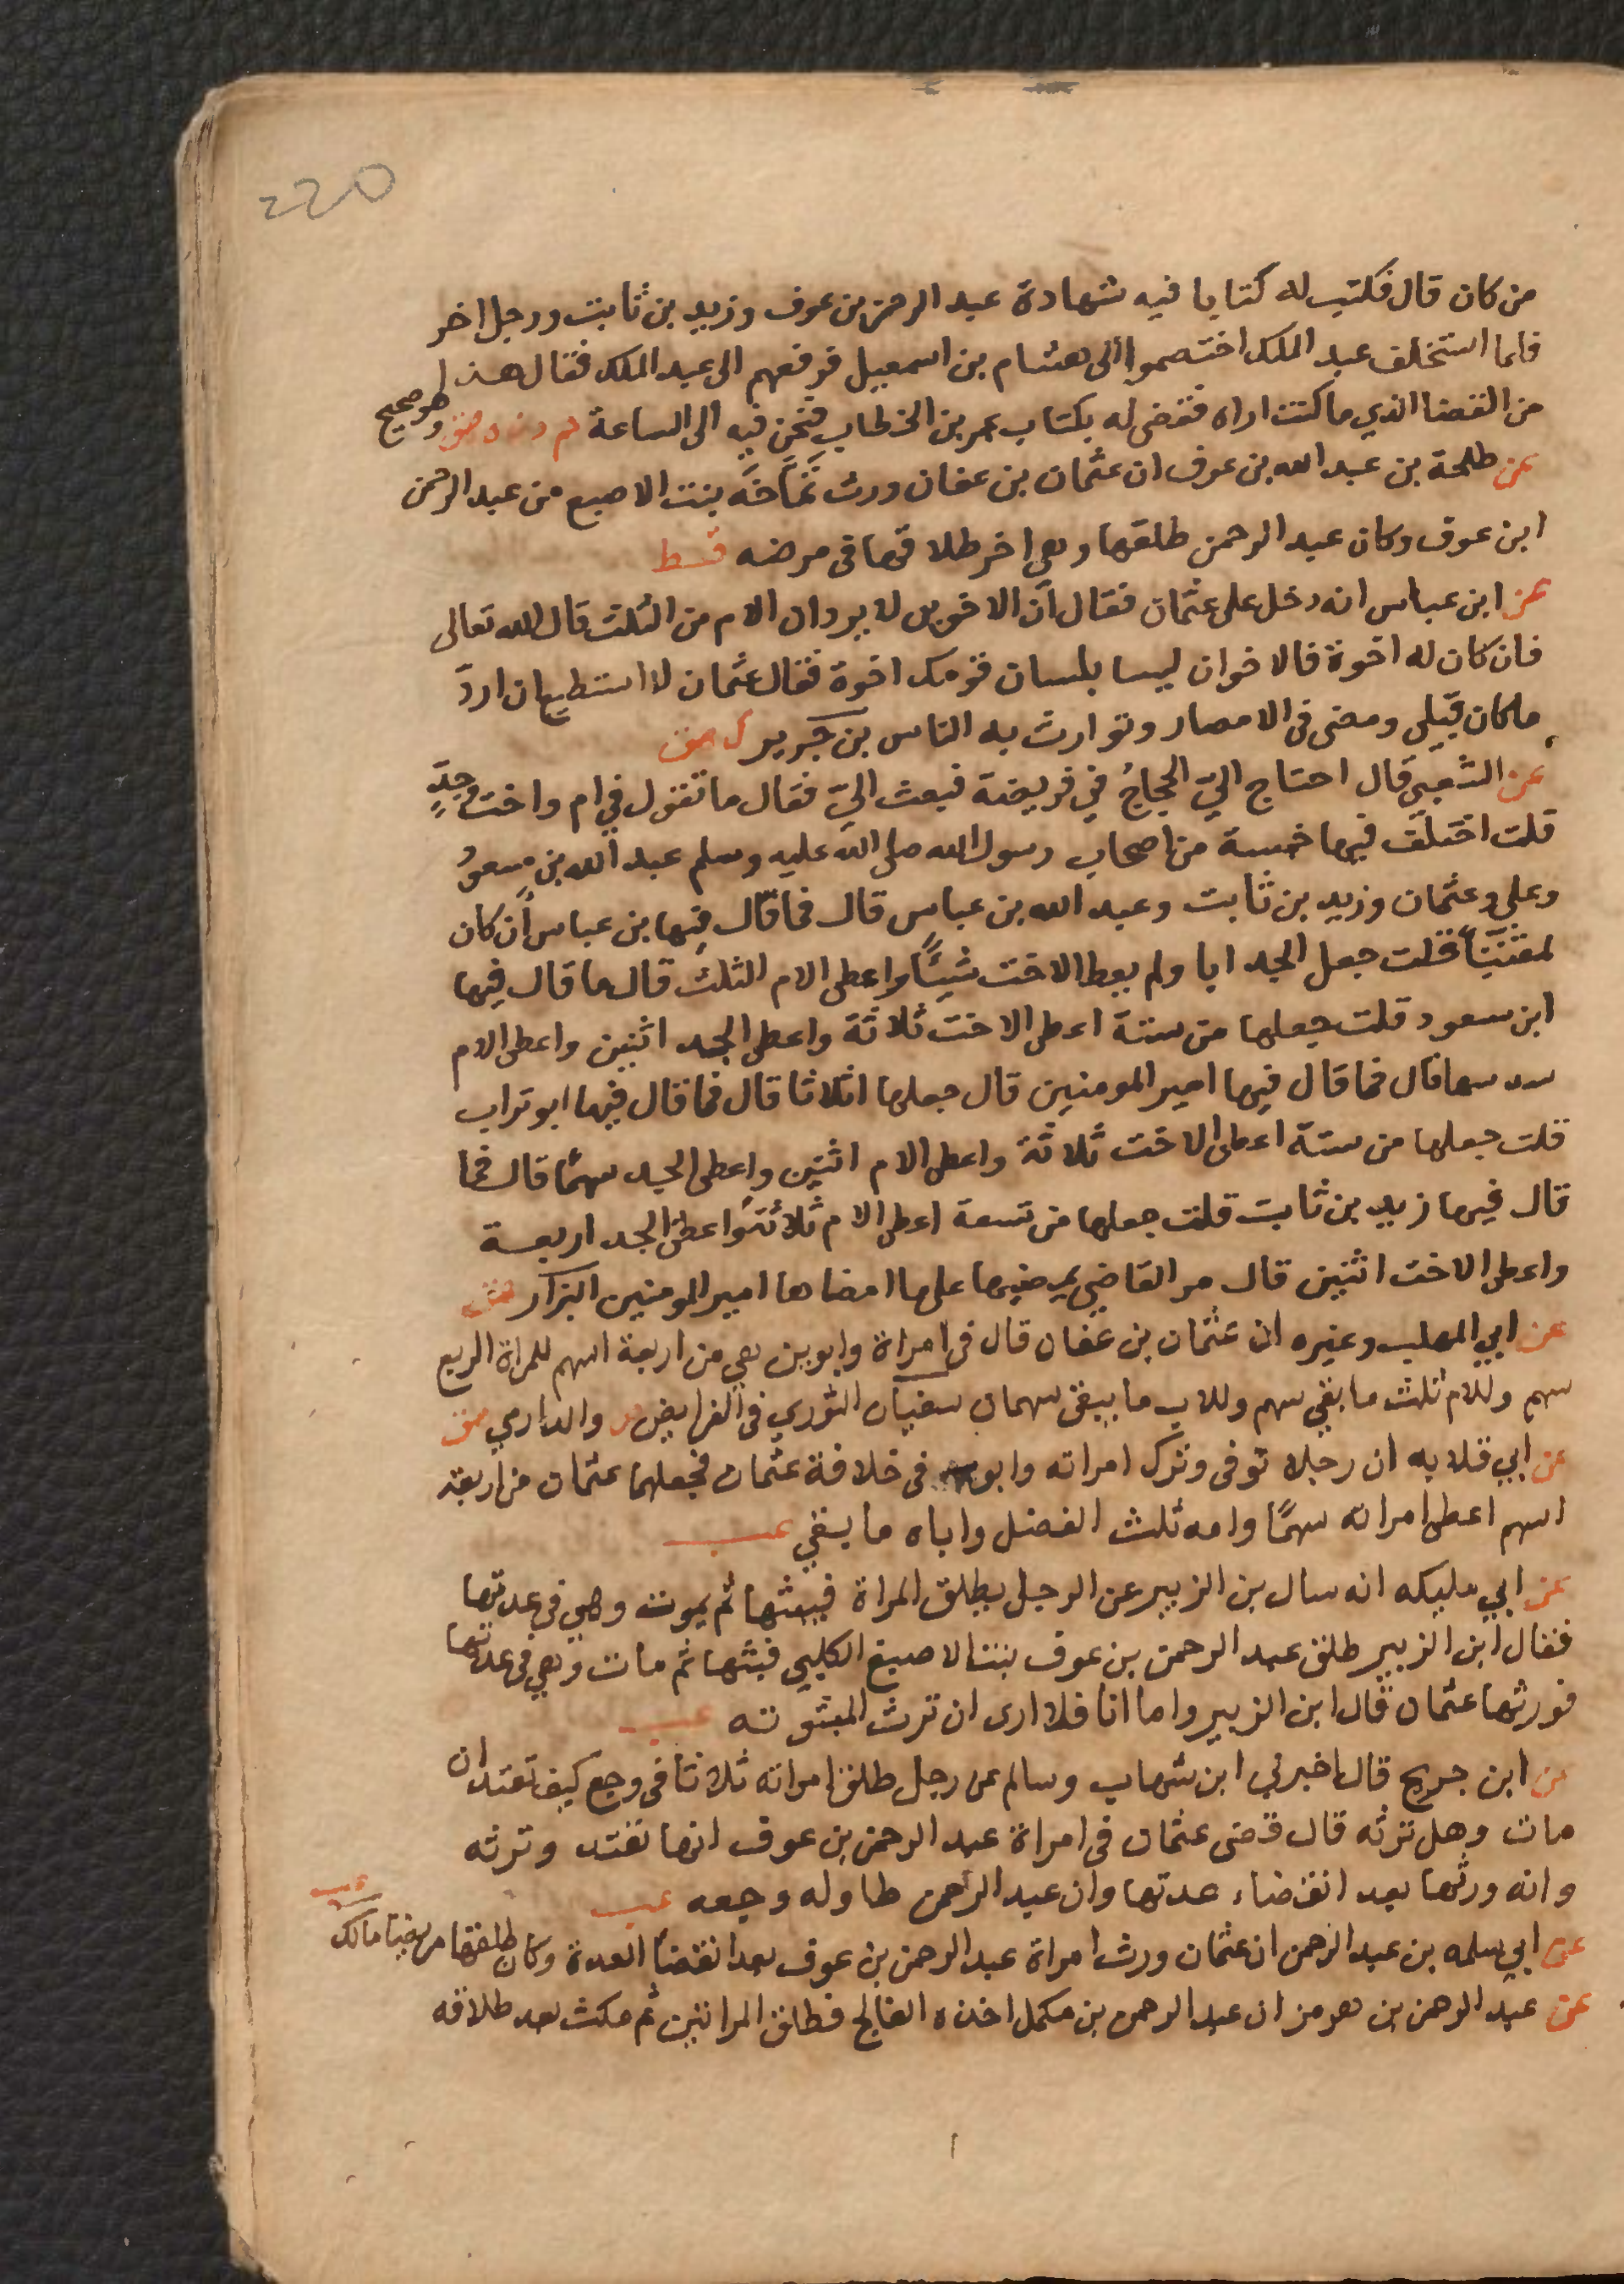 220
من كان قال فكتب له كتابا فيه شهادة عبد الرحمن بن عوف وزيد بن ثابت ورجل اخر
فلما استخلف عبد الملك اختصموا الى هشام بن اسمعيل فرفعهم الى عبد الملك فقال هذا
من القضا الذي ما كنت اراه فقضى له بكتاب عمر بن الخطاب فنحن فيه الى الساعة حم د ن ه ق وهو صحيح
عن طلحة بن عبد الله بن عوف ان عثمان بن عفان ورث تماضر بنت الاصبع من عبد الرحمن
ابن عوف وكان عبد الرحمن طلقها وهي اخر طلاقها فى مرضه قط
عن ابن عباس انه دخل على عثمان فقال ان الاخوين لا يردان الام من الثلث قال الله تعالى
فان كان له اخوة فالاخوان ليسا بلسان قومك اخوة فقال عثمان لا استطيع ان ارد
ما كان قبلي ومضى فى الامصار وتوارث به الناس بن جرير ك هق
عن الشعبي قال احتاج اليّ الحجاج في فريضة فبعث اليّ فقال ما تقول في ام واخت وجدٍّ
قلت اختلف فيها خمسة من اصحاب رسول الله صلى الله عليه وسلم عبد الله بن مسعود
وعلي وعثمان وزيد بن ثابت وعبد الله بن عباس قال فما قال فيها بن عباس ان كان
لمفتيا قلت جعل الجد ابا ولم يعط الاخت شيئاً واعطى الام الثلث قال ما قال فيها
ابن مسعود قلت جعلها من ستة اعطى الاخت ثلاثة واعطى الجد اثنين واعطى الام
سدسها قال فما قال فيها امير المومنين قال جعلها اثلاثا قال فما قال فيها ابو تراب
قلت جعلها من ستة اعطى الاخت ثلاثة واعطى الام اثنين واعطى الجد سهمًا قال فما
قال فيها زيد بن ثابت قلت جعلها من تسعة اعطى الام ثلاثة واعطى الجد اربعة
واعطى الاخت اثنين قال مر القاضي يمضيها على ما امضاها امير المومنين البزار هق
عن ابي المهلب وغيره ان عثمان بن عفان قال فى امراة وابوين هي من اربعة اسهم للمراة الربع
سهم وللام ثلث ما بقي سهم وللاب ما يبقى سهمان سفيان الثوري فى الفرايض والدارمي هق
عن ابي قلابه ان رجلا توفى وترك امراته وابويه فى خلافة عثمان فجعلها عثمان من اربعة
اسهم اعطى امراته سهمًا وامه ثلث الفضل واباه ما بقي عب
عن ابي مليكه انه سال بن الزبير عن الرجل يطلق المراة فيبتها ثم يموت وهي فى عدتها
فقال ابن الزبير طلق عبد الرحمن بن عوف بنت الاصبغ الكلبي فبتها ثم مات وهي فى عدتها
فورثها عثمان قال ابن الزبير واما انا فلا ارى ان ترث المبتوته عب
عن ابن جريج قال اخبرني ابن شهاب وسالم عن رجل طلق امراته ثلاثا فى وجع كيف تعتد ان
مات وهل ترثه قال قضى عثمان فى امراة عبد الرحمن بن عوف انها تعتد وترثه
وانه ورثها بعد انقضاء عدتها وان عبد الرحمن طاوله وجعه عب
عن ابي سلمه بن عبد الرحمن ان عثمان ورث امراة عبد الرحمن بن عوف بعد انقضا العدة وكان طلقها مريضا مالك عب
عن عبد الرحمن بن هرمز ان عبد الرحمن بن مكمل اخذه الفالج فطلق امراتين ثم مكث بعد طلاقه